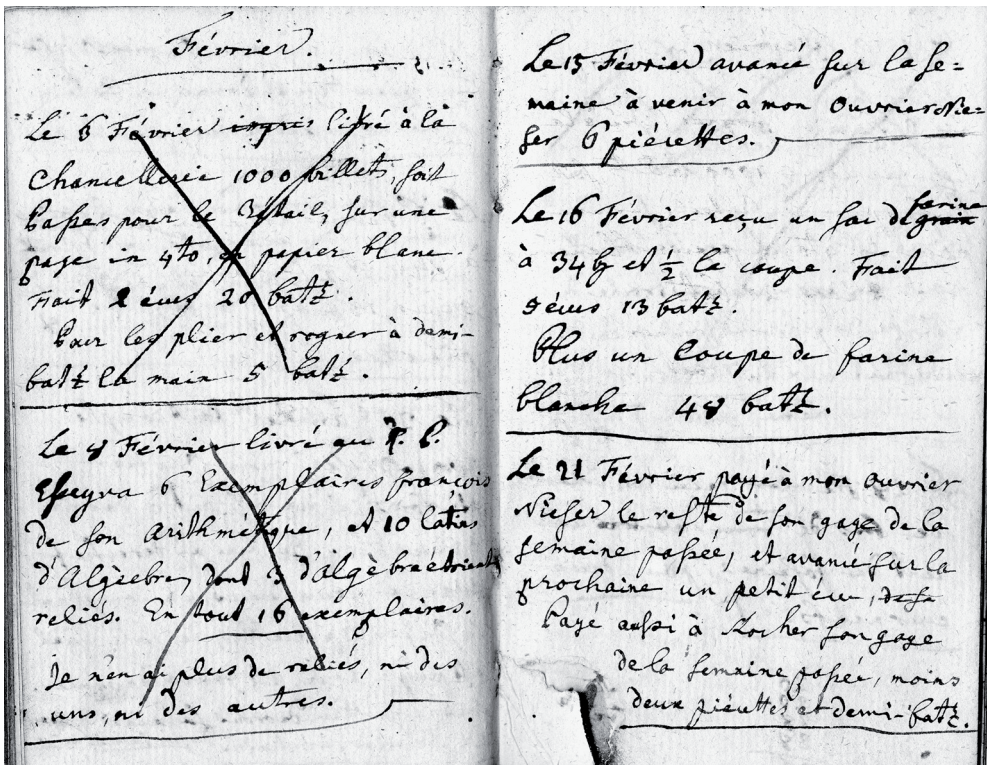 Février
Le 6 Février livré à la
Chancellerie 1000 billets, soit
Passes pour le Bétail, sur une
page in 4to, en papier blanc.
Fait 2 écus 20 batz.
Pour les plier et rogner à demi-
batz la main 5 batz.
Le 8 Février livré au R. P.
Esseyva 6 Exemplaires françois
de son Arithmétique, et 10 latins
d'Algèbre, dont 3 d'algèbre étoient
reliés. En tout 16 exemplaires.
Je n'en ai plus de reliés, ni des
uns, ni des autres.
Le 15 Février avancé sur la se=
maine à venir à mon Ouvrier Nie=
ser 6 piécettes.
Le 16 Février reçu un sac de grain farine
à 34 bz et ½ la coupe. Fait
9 écus 13 batz.
Plus un coupe de farine
blanche 48 batz.
Le 21 Février payé à mon ouvrier
Nieser le reste de son gage de la
semaine passée, et avancé sur la
prochaine un petit écu, de sa
Payé aussi à Kocher son gage
de la semaine passée, moins
deux piécettes et demi-batz.